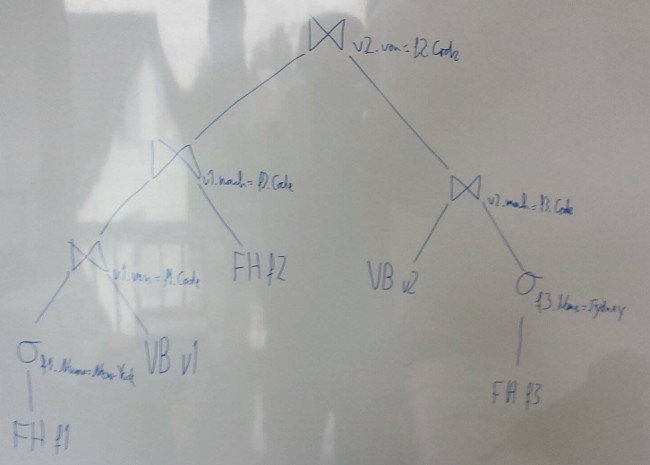 ⋈ v2.von = f2.Code
⋈ v1.nach = f2.Code
⋈ v2.nach = f3.Code
⋈ v1.von = f1.Code
FH f2
VB v2
σ f3.Name=Sydney
σ f1.Name=New York
VB v1
FH f3
FH f1